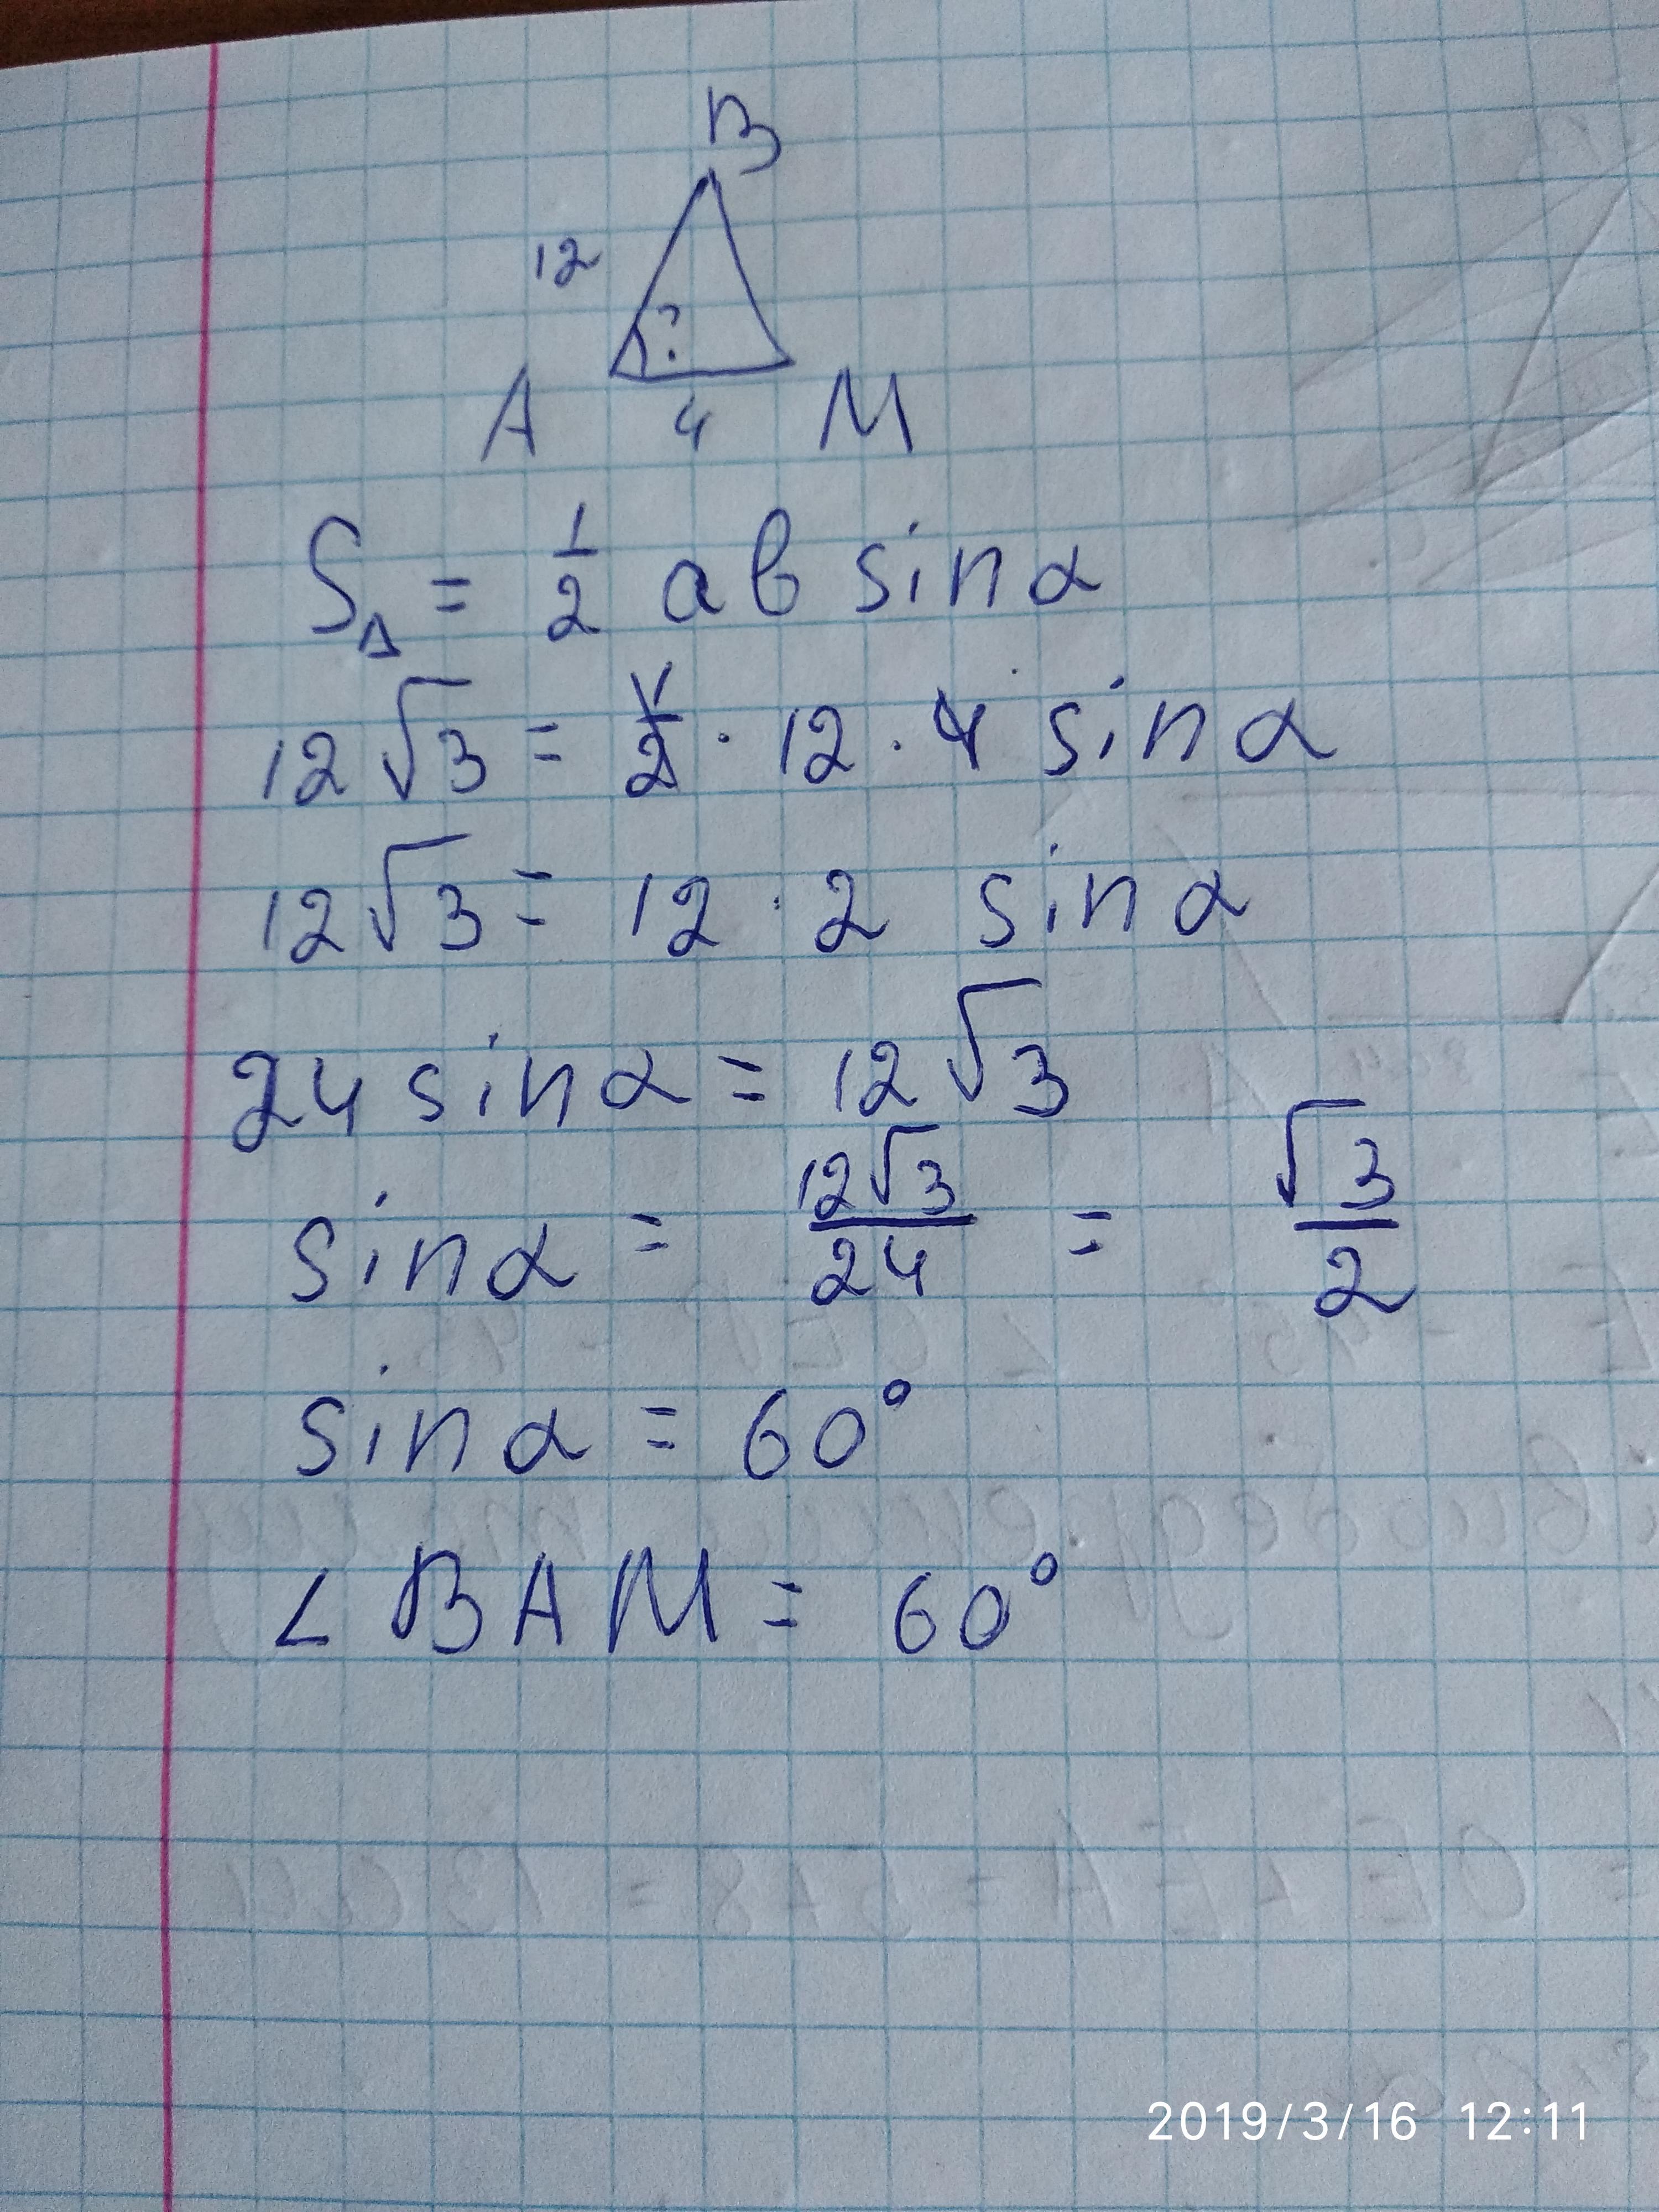 B
12
?
A 4 M
S△ = 1/2 ab sinα
12√3 = 1/2 · 12 · 4 sinα
12√3 = 12 · 2 sinα
24 sinα = 12√3
sinα = 12√3/24 = √3/2
sinα = 60°
∠BAM = 60°
2019/3/16 12:11